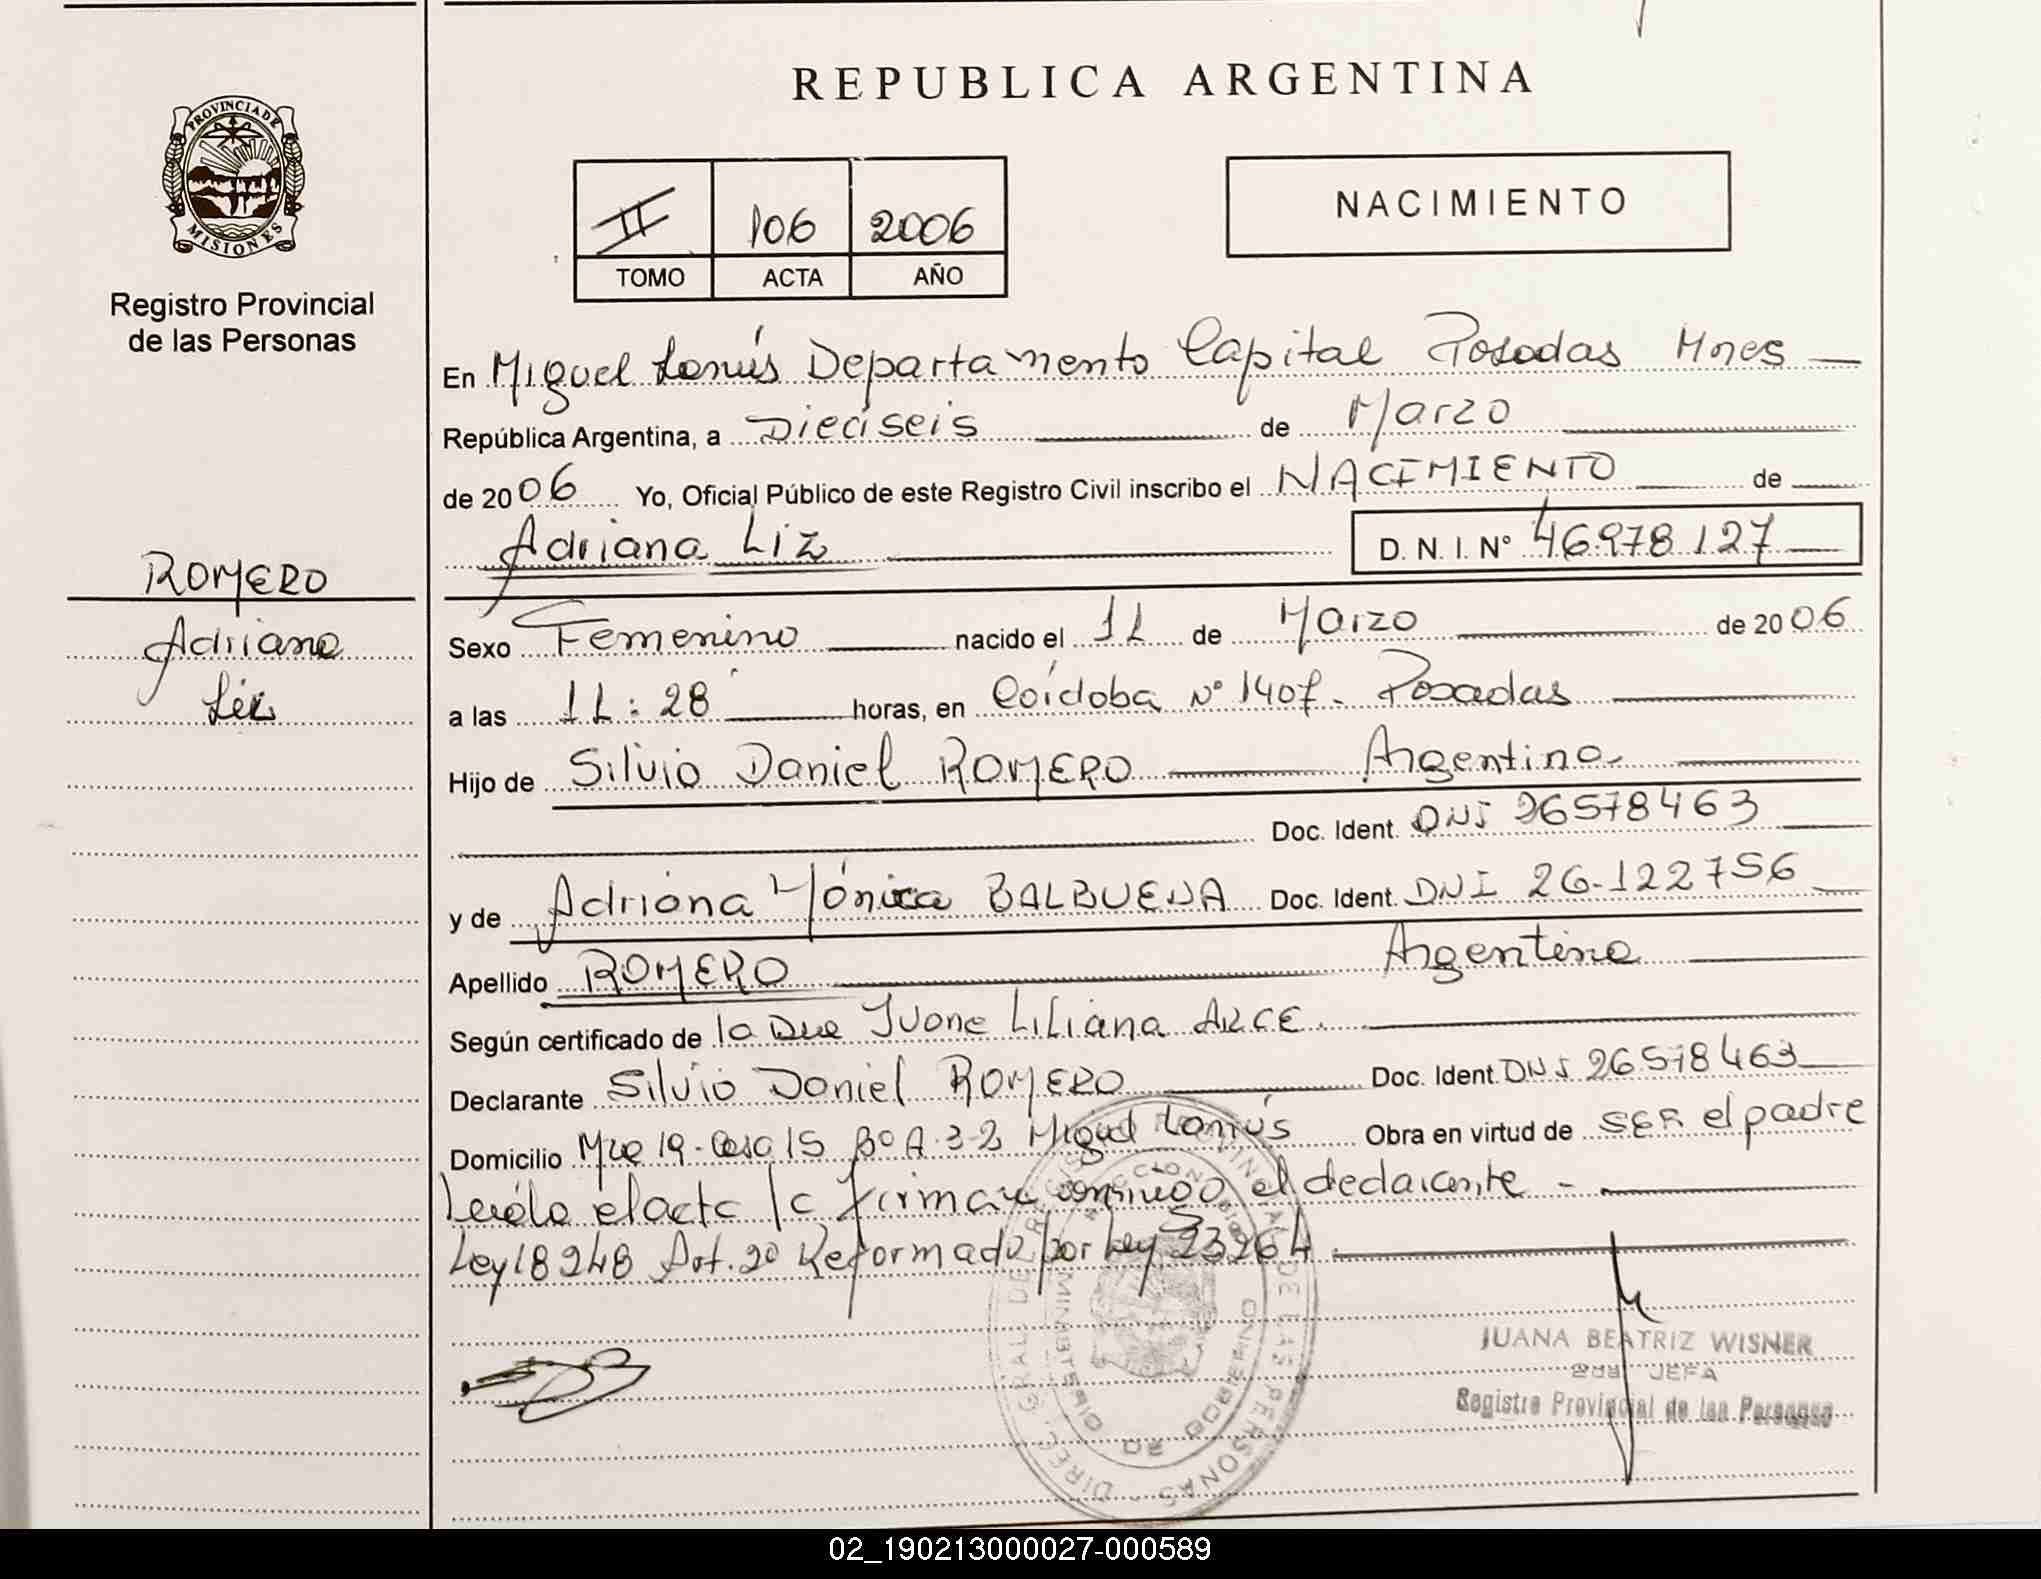 REPUBLICA ARGENTINA
PROVINCIA DE
MISIONES
Registro Provincial
de las Personas
II 106 2006
TOMO ACTA AÑO
NACIMIENTO
En Miguel Lanús Departamento Capital Posadas Mnes
República Argentina, a Dieciseis de Marzo
de 2006 Yo, Oficial Público de este Registro Civil inscribo el NACIMIENTO de
Adriana Liz D. N. I. N° 46978127
ROMERO
Adriana
Liz
Sexo Femenino nacido el 11 de Marzo de 2006
a las 11:28 horas, en Córdoba N° 1407- Posadas
Hijo de Silvio Daniel ROMERO Argentino
Doc. Ident. DNI 26578463
y de Adriana Mónica BALBUENA Doc. Ident. DNI 26.122756
Apellido ROMERO Argentina
Según certificado de la Dra Ivone Liliana ARCE.
Declarante Silvio Daniel ROMERO Doc. Ident. DNI 26578463
Domicilio Mza 19-Casa 15 B° A-3-2 Miguel Lanús Obra en virtud de SER el padre
Leída el acta la firma conmigo el declarante -
Ley 18248 Art. 20 Reformado por Ley 23264
JUANA BEATRIZ WISNER
2da JEFA
Registro Provincial de las Personas
02_190213000027-000589